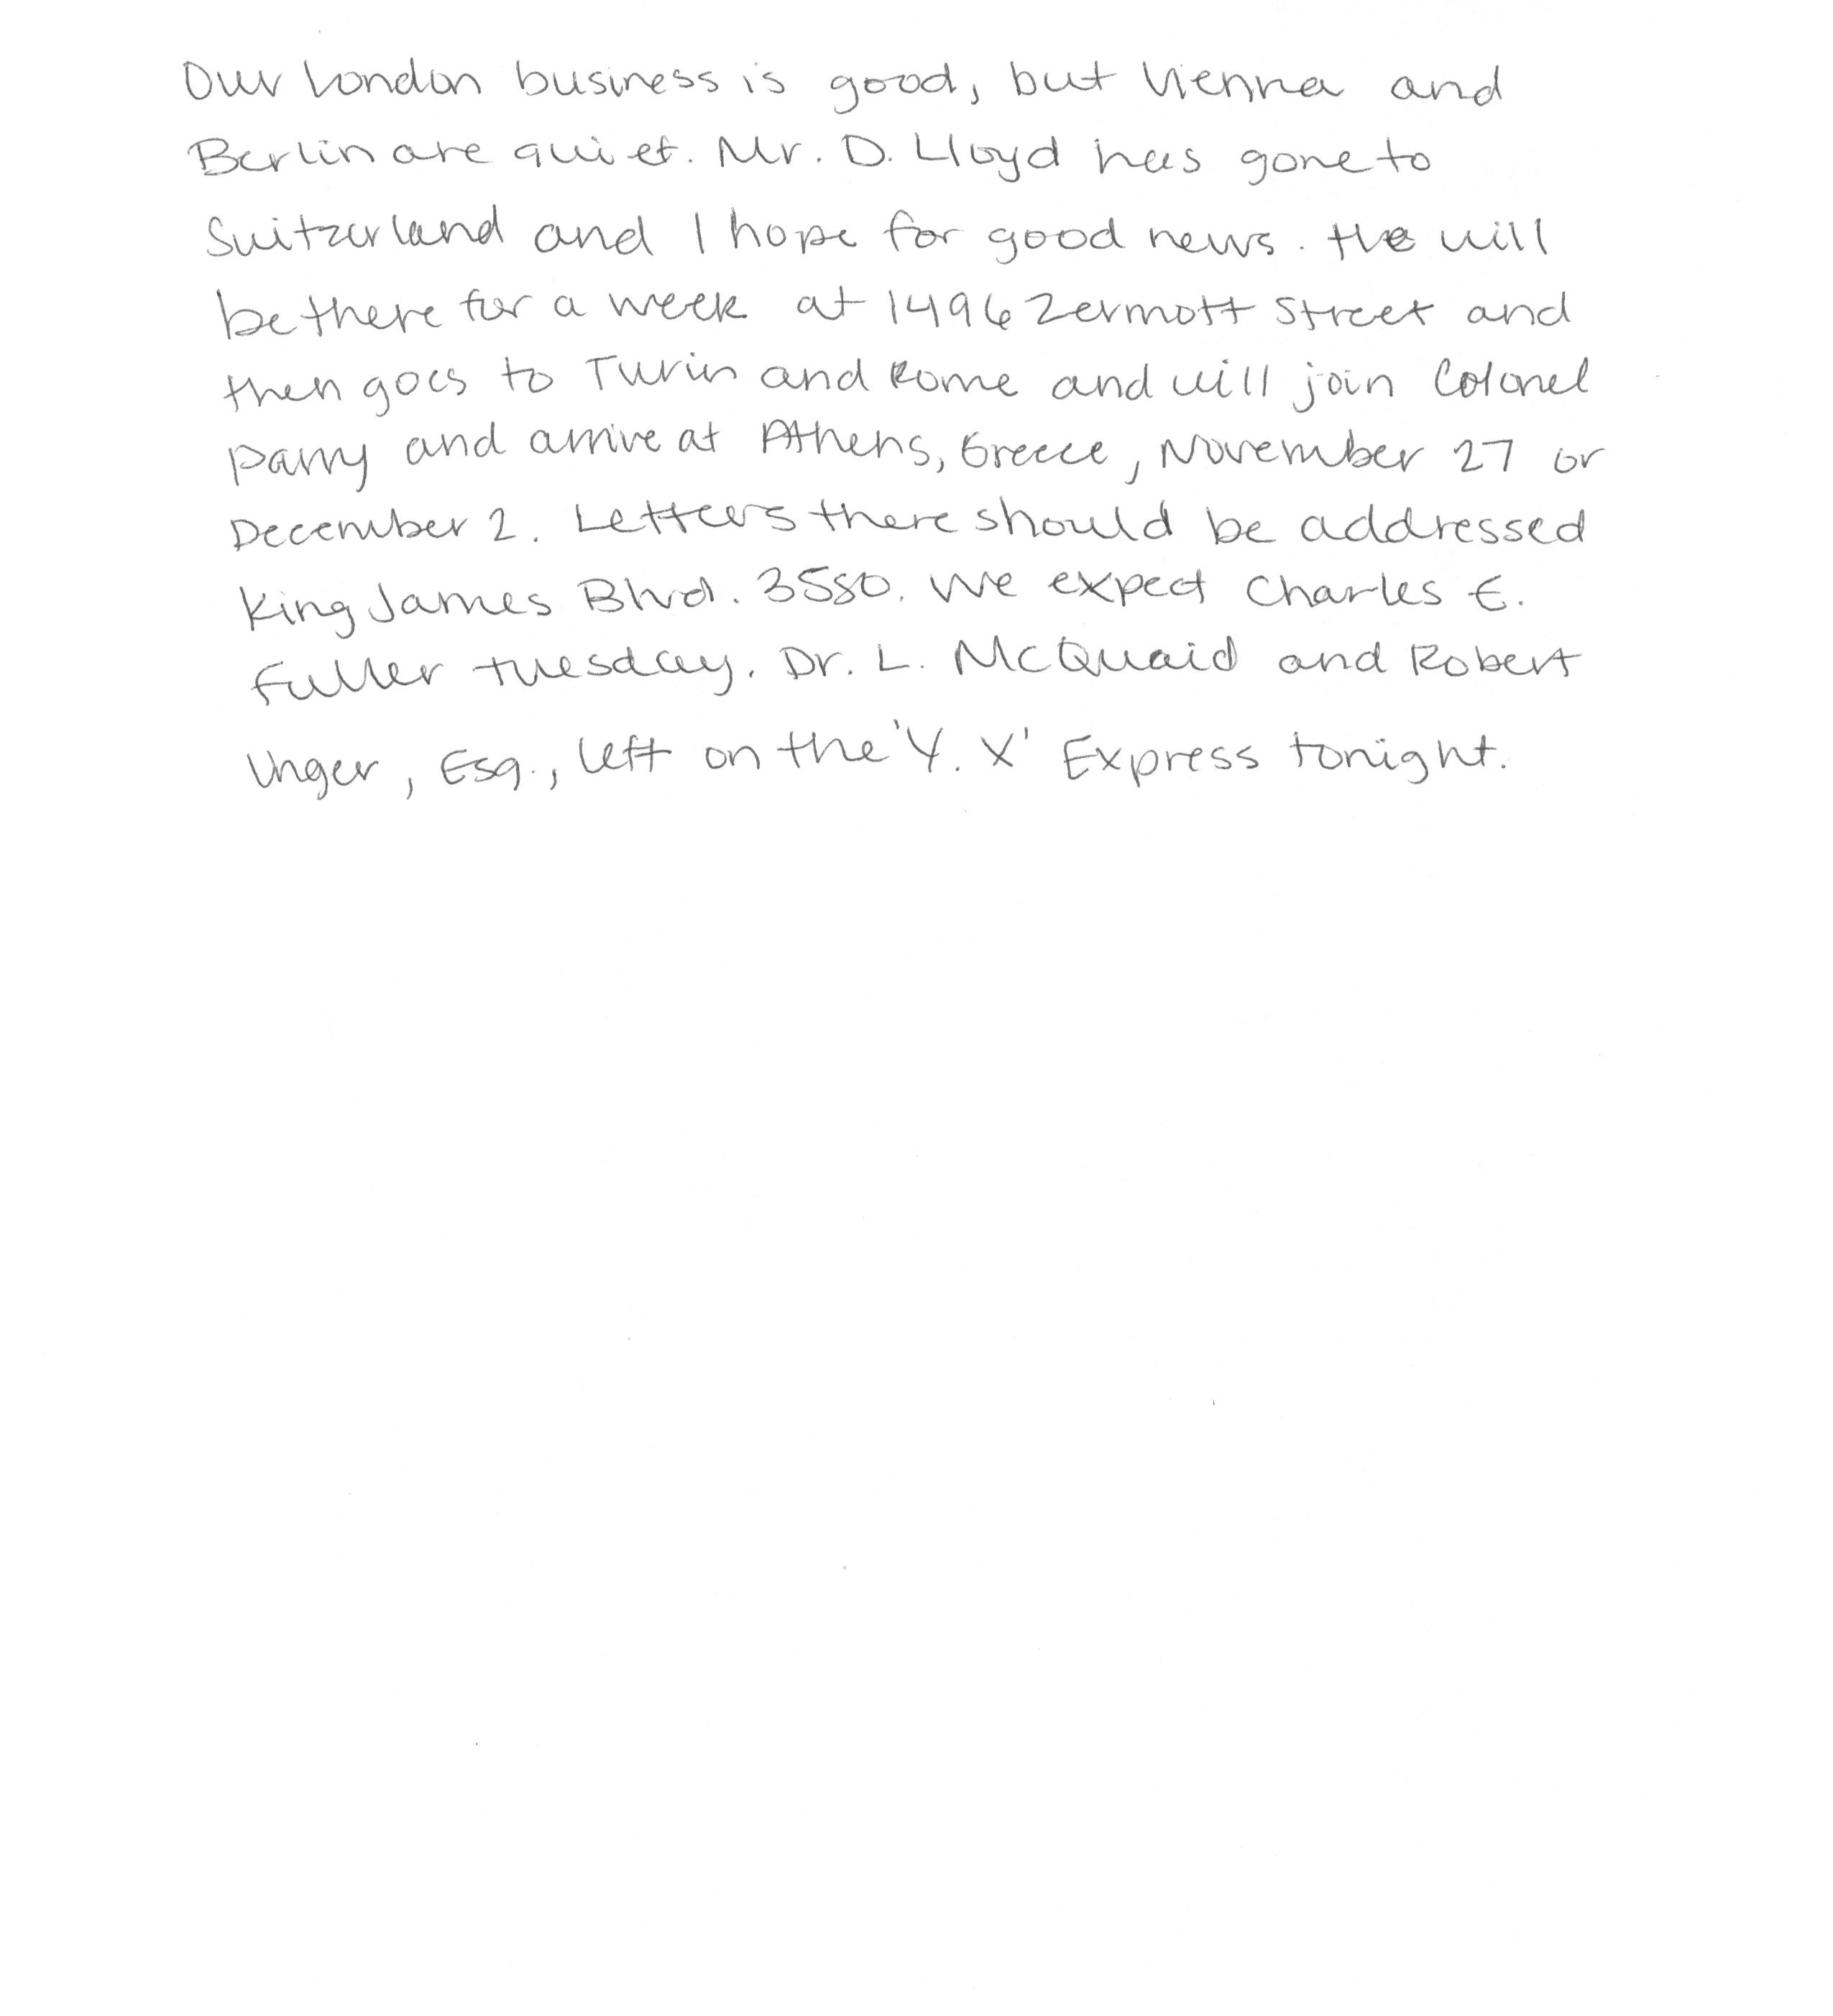 Our London business is good, but Vienna and
Berlin are quiet. Mr. D. Lloyd has gone to
Switzerland and I hope for good news. He will
be there for a week at 1496 Zermott Street and
then goes to Turin and Rome and will join Colonel
Parry and arrive at Athens, Greece, November 27 or
December 2. Letters there should be addressed
King James Blvd. 3580. We expect Charles E.
Fuller Tuesday. Dr. L. McQuaid and Robert
Unger, Esq., left on the 'Y. X' Express tonight.